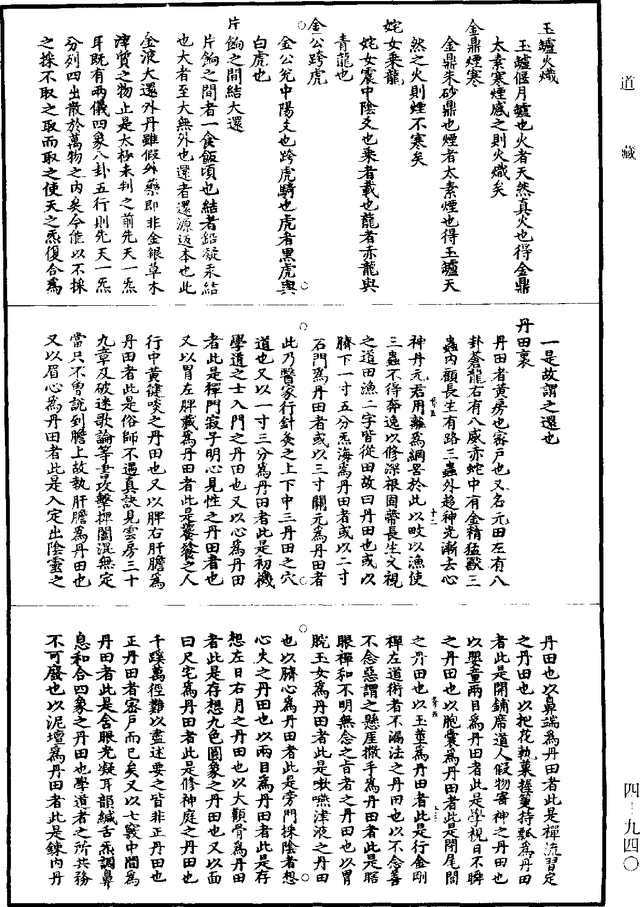 道藏
玉爐火熾
玉爐偃月爐也火者天然真火也得金鼎
太素寒煙感之則火熾矣
金鼎煙寒
金鼎朱砂鼎也煙者太素煙也得玉爐天
然之火則煙不寒矣
姹女乘龍
姹女震中陰爻也乘者載也龍者赤龍與
青龍也
金公跨虎
金公兌中陽爻也跨虎騎也虎者黑虎與
白虎也
片餉之間結大還
片餉之間者一食飯頃也結者鉛凝汞結
也大者至大無外也還者還源返本也此
金液大還外丹雖假外藥即非金銀草木
津質之物止是太極未判之前先天一炁
耳既有兩儀四象八卦五行則先天一炁
分列四出散於萬物之內矣今能以不採
之採不取之取而取之使天之炁復合為
一是故謂之還也
丹田裏
丹田者黃房也密戶也又名元田左有八
卦蒼龍右有八威赤蛇中有金精猛獸三
蟲內顧長生有路三蟲外超神光漸去心
神丹元君用離為綱罟於此以畋以漁使
三蟲不得奔逸以修深根固蔕長生久視
之道田漁二字皆從田故曰丹田也或以
臍下一寸五分炁海為丹田者或以二寸
石門為丹田者或以三寸關元為丹田者
此乃醫家行針灸之上下中三丹田之穴
道也又以一寸三分為丹田者此是初機
學道之士入門之丹田也又以心為丹田
者此是禪門寂子明心見性之丹田者也
又以胃左脾藏為丹田者此是饕餮之人
行中黃健啖之丹田也又以脾右肝膽為
丹田者此是俗師不遇真訣見雲房三十
九章及破迷歌論等書攻擊捭闔混無定
當只不曾說到膽上故執肝膽為丹田也
又以眉心為丹田者此是入定出陰靈之
丹田也以鼻端為丹田者此是禪流習定
之丹田也以把花執菓握菫持瓢為丹田
者此是開鋪席道人假物寄神之丹田也
以嬰童兩目為丹田者此是學視日不瞬
之丹田也以胞囊為丹田者此是閉尾閭
之丹田也以玉莖為丹田者此是行金剛
禪左道術者不漏法之丹田也以不念善
不念惡謂之懸崖撒手為丹田者此是瞎
眼禪和不明無念之旨者之丹田也以胃
脘玉女為丹田者此是嗽嚥津液之丹田
也以臍心為丹田者此是旁門採陰者想
心火之丹田也以兩目為丹田者此是存
想左日右月之丹田也以大顴骨為丹田
者此是存想九色圓象之丹田也又以面
曰尺宅為丹田者此是修神庭之丹田也
千蹊萬徑難以盡述要之皆非正丹田也
正丹田者密戶而已矣又以七竅中間為
丹田者此是含眼光凝耳韻緘舌炁調鼻
息和合四象之丹田也學道者之所共務
不可廢也以泥壇為丹田者此是鍊內丹
四－九四〇